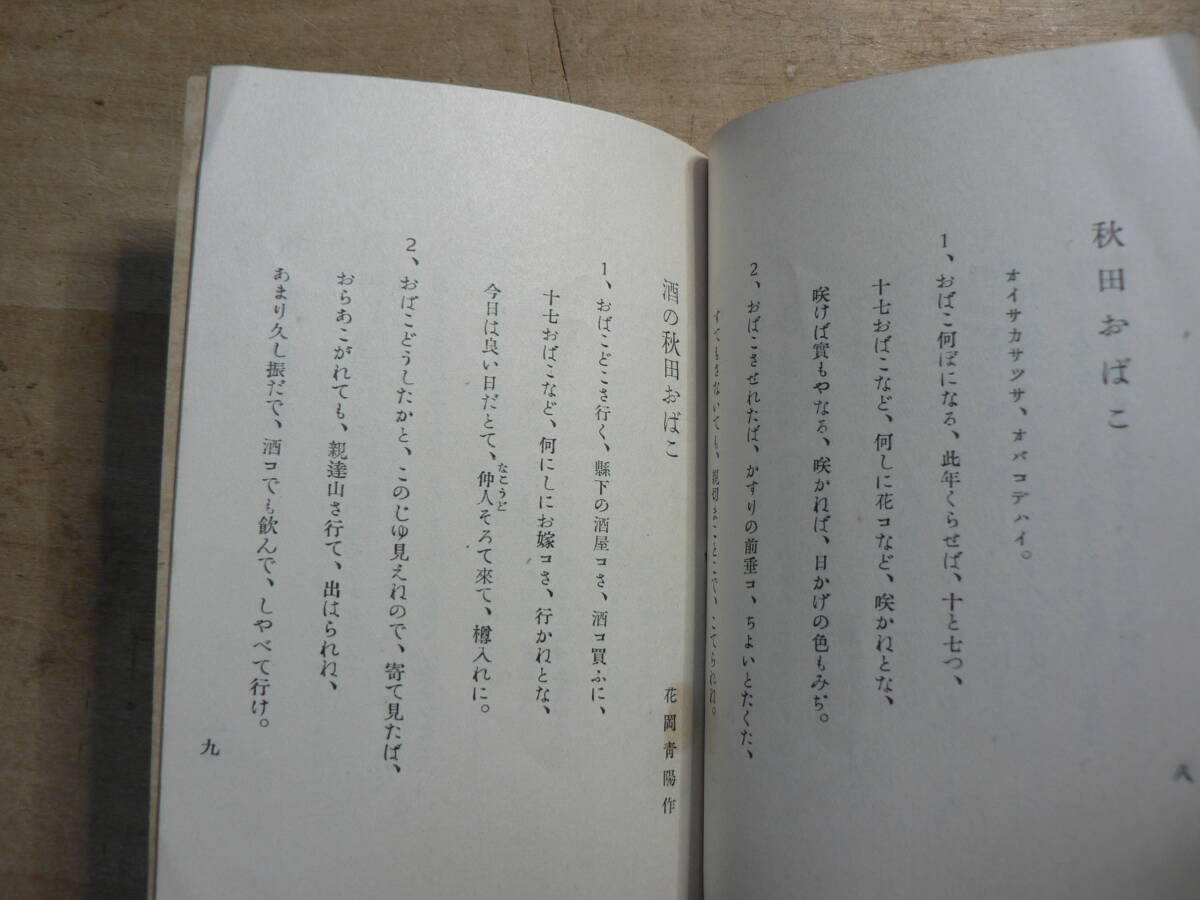 秋田おばこ
オイサカサツサ、オバコデハイ。
1、おばこ何ぼになる、此年くらせば、十と七つ、
十七おばこなど、何しに花コなど、咲かねとな、
咲けば實もやなる、咲かねば、日かげの色もみぢ。
2、おばこさせれたば、かすりの前垂コ、ちよいとたくた、
すてもさないても、親切まことこで、こてられね。
八
酒の秋田おばこ
花岡青陽作
1、おばこどこさ行く、縣下の酒屋コさ、酒コ買ふに、
十七おばこなど、何にしにお嫁コさ、行かねとな、
今日は良い日だとて、仲人そろて來て、樽入れに。
なこうど
2、おばこどうしたかと、このじゆ見えねので、寄て見たば、
おらあこがれても、親達山さ行て、出はられね、
あまり久し振だで、酒コでも飲んで、しやべて行け。
九